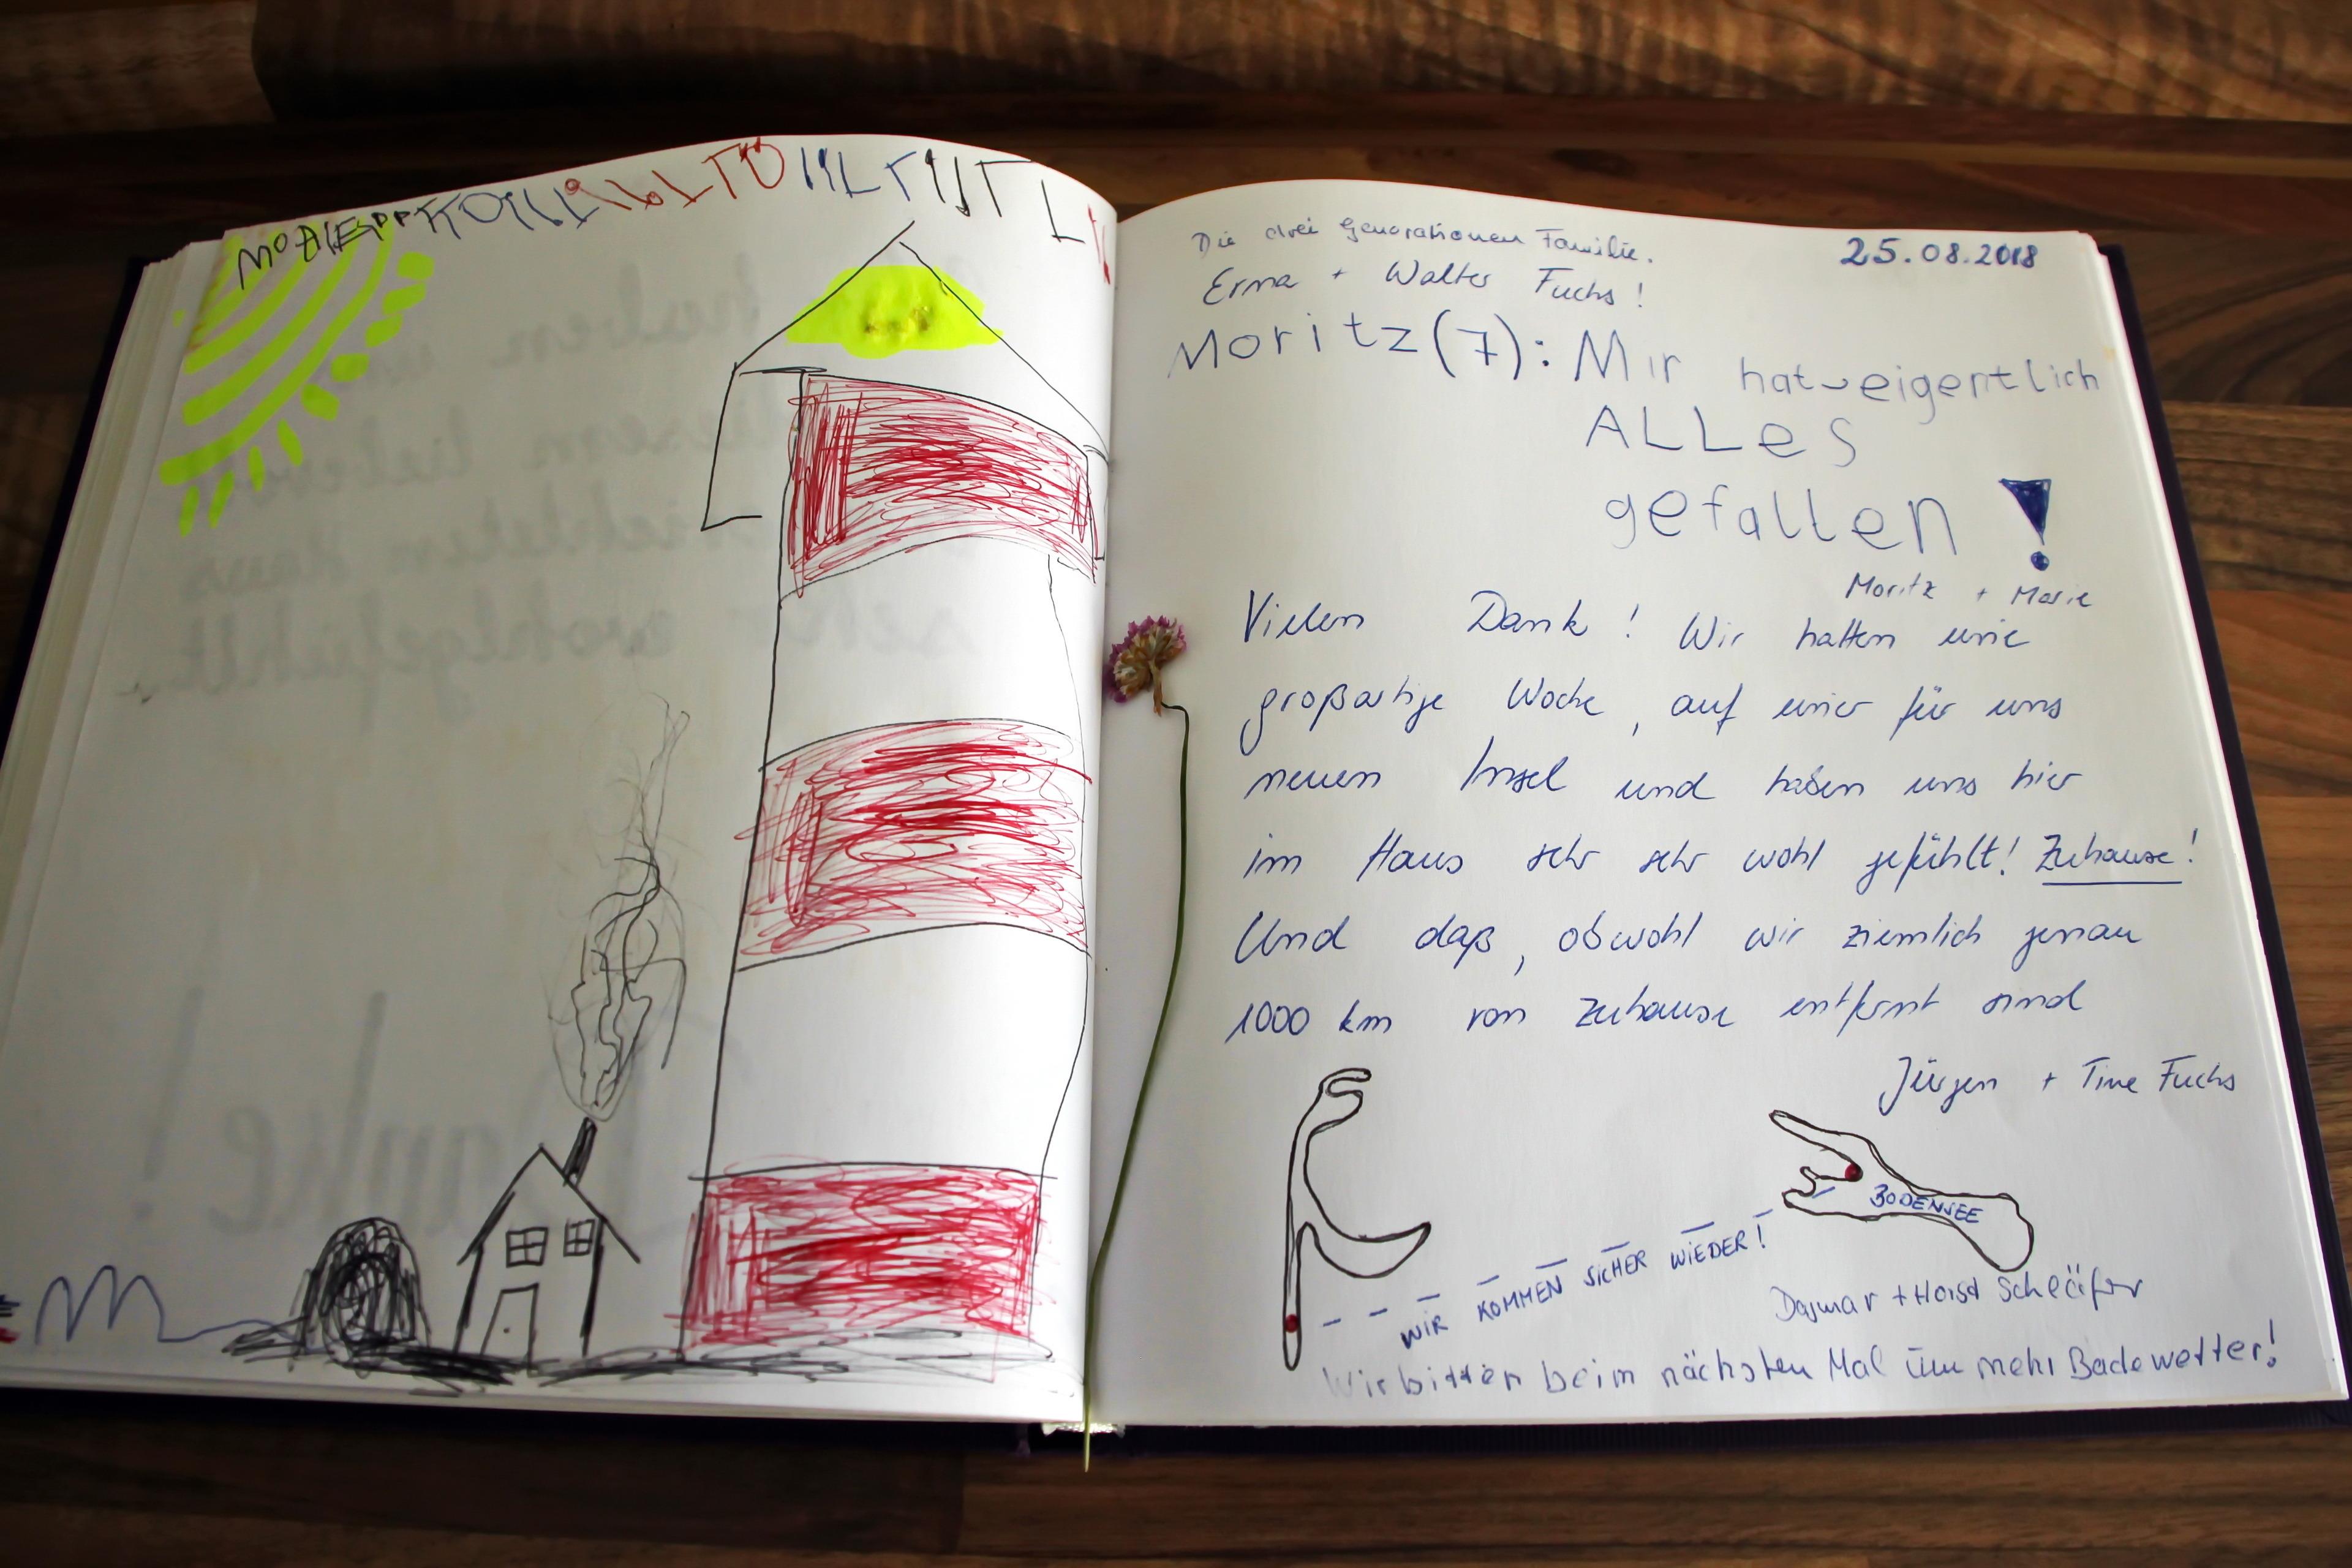 Die drei Generationen Familie.
25.08.2018
Erna + Walter Fuchs!
Moritz (7): Mir hat eigentlich
ALLes
gefallen!
Moritz + Marie
Vielen Dank! Wir hatten eine
großartige Woche, auf einer für uns
neuen Insel und haben uns hier
im Haus sehr sehr wohl gefühlt! Zuhause!
Und daß, obwohl wir ziemlich genau
1000 km von Zuhause entfernt sind
Jürgen + Tine Fuchs
BODENSEE
WIR KOMMEN SICHER WIEDER!
Dagmar + Horst Schläfer
Wir bitten beim nächsten Mal um mehr Badewetter!